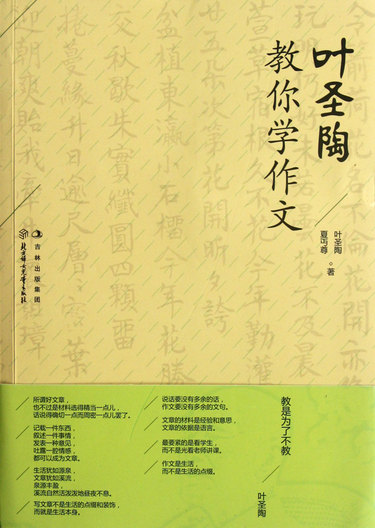 叶圣陶
教你学作文
叶圣陶
夏丏尊
。著
吉林出版集团
北方妇女儿童出版社
盆植東瀛小石榴
年花勝
交秋歇朱實纖圓四顆留
次第花開昨夕誇
教是为了不教
叶圣陶
所谓好文章，
也不过是材料选得精当一点儿，
话说得确切一点而周密一点儿罢了。
记载一件东西，
叙述一件事情，
发表一种意见，
吐露一腔情感，
都可以成为文章。
生活犹如源泉，
文章犹如溪流，
泉源丰盈，
溪流自然活泼泼地昼夜不息。
写文章不是生活的点缀和装饰，
而就是生活本身。
说话要没有多余的话，
作文要没有多余的文句。
文章的材料是经验和意思，
文章的依据是语言。
最要紧的是看学生，
而不是光看老师讲课。
作文是生活，
而不是生活的点缀。